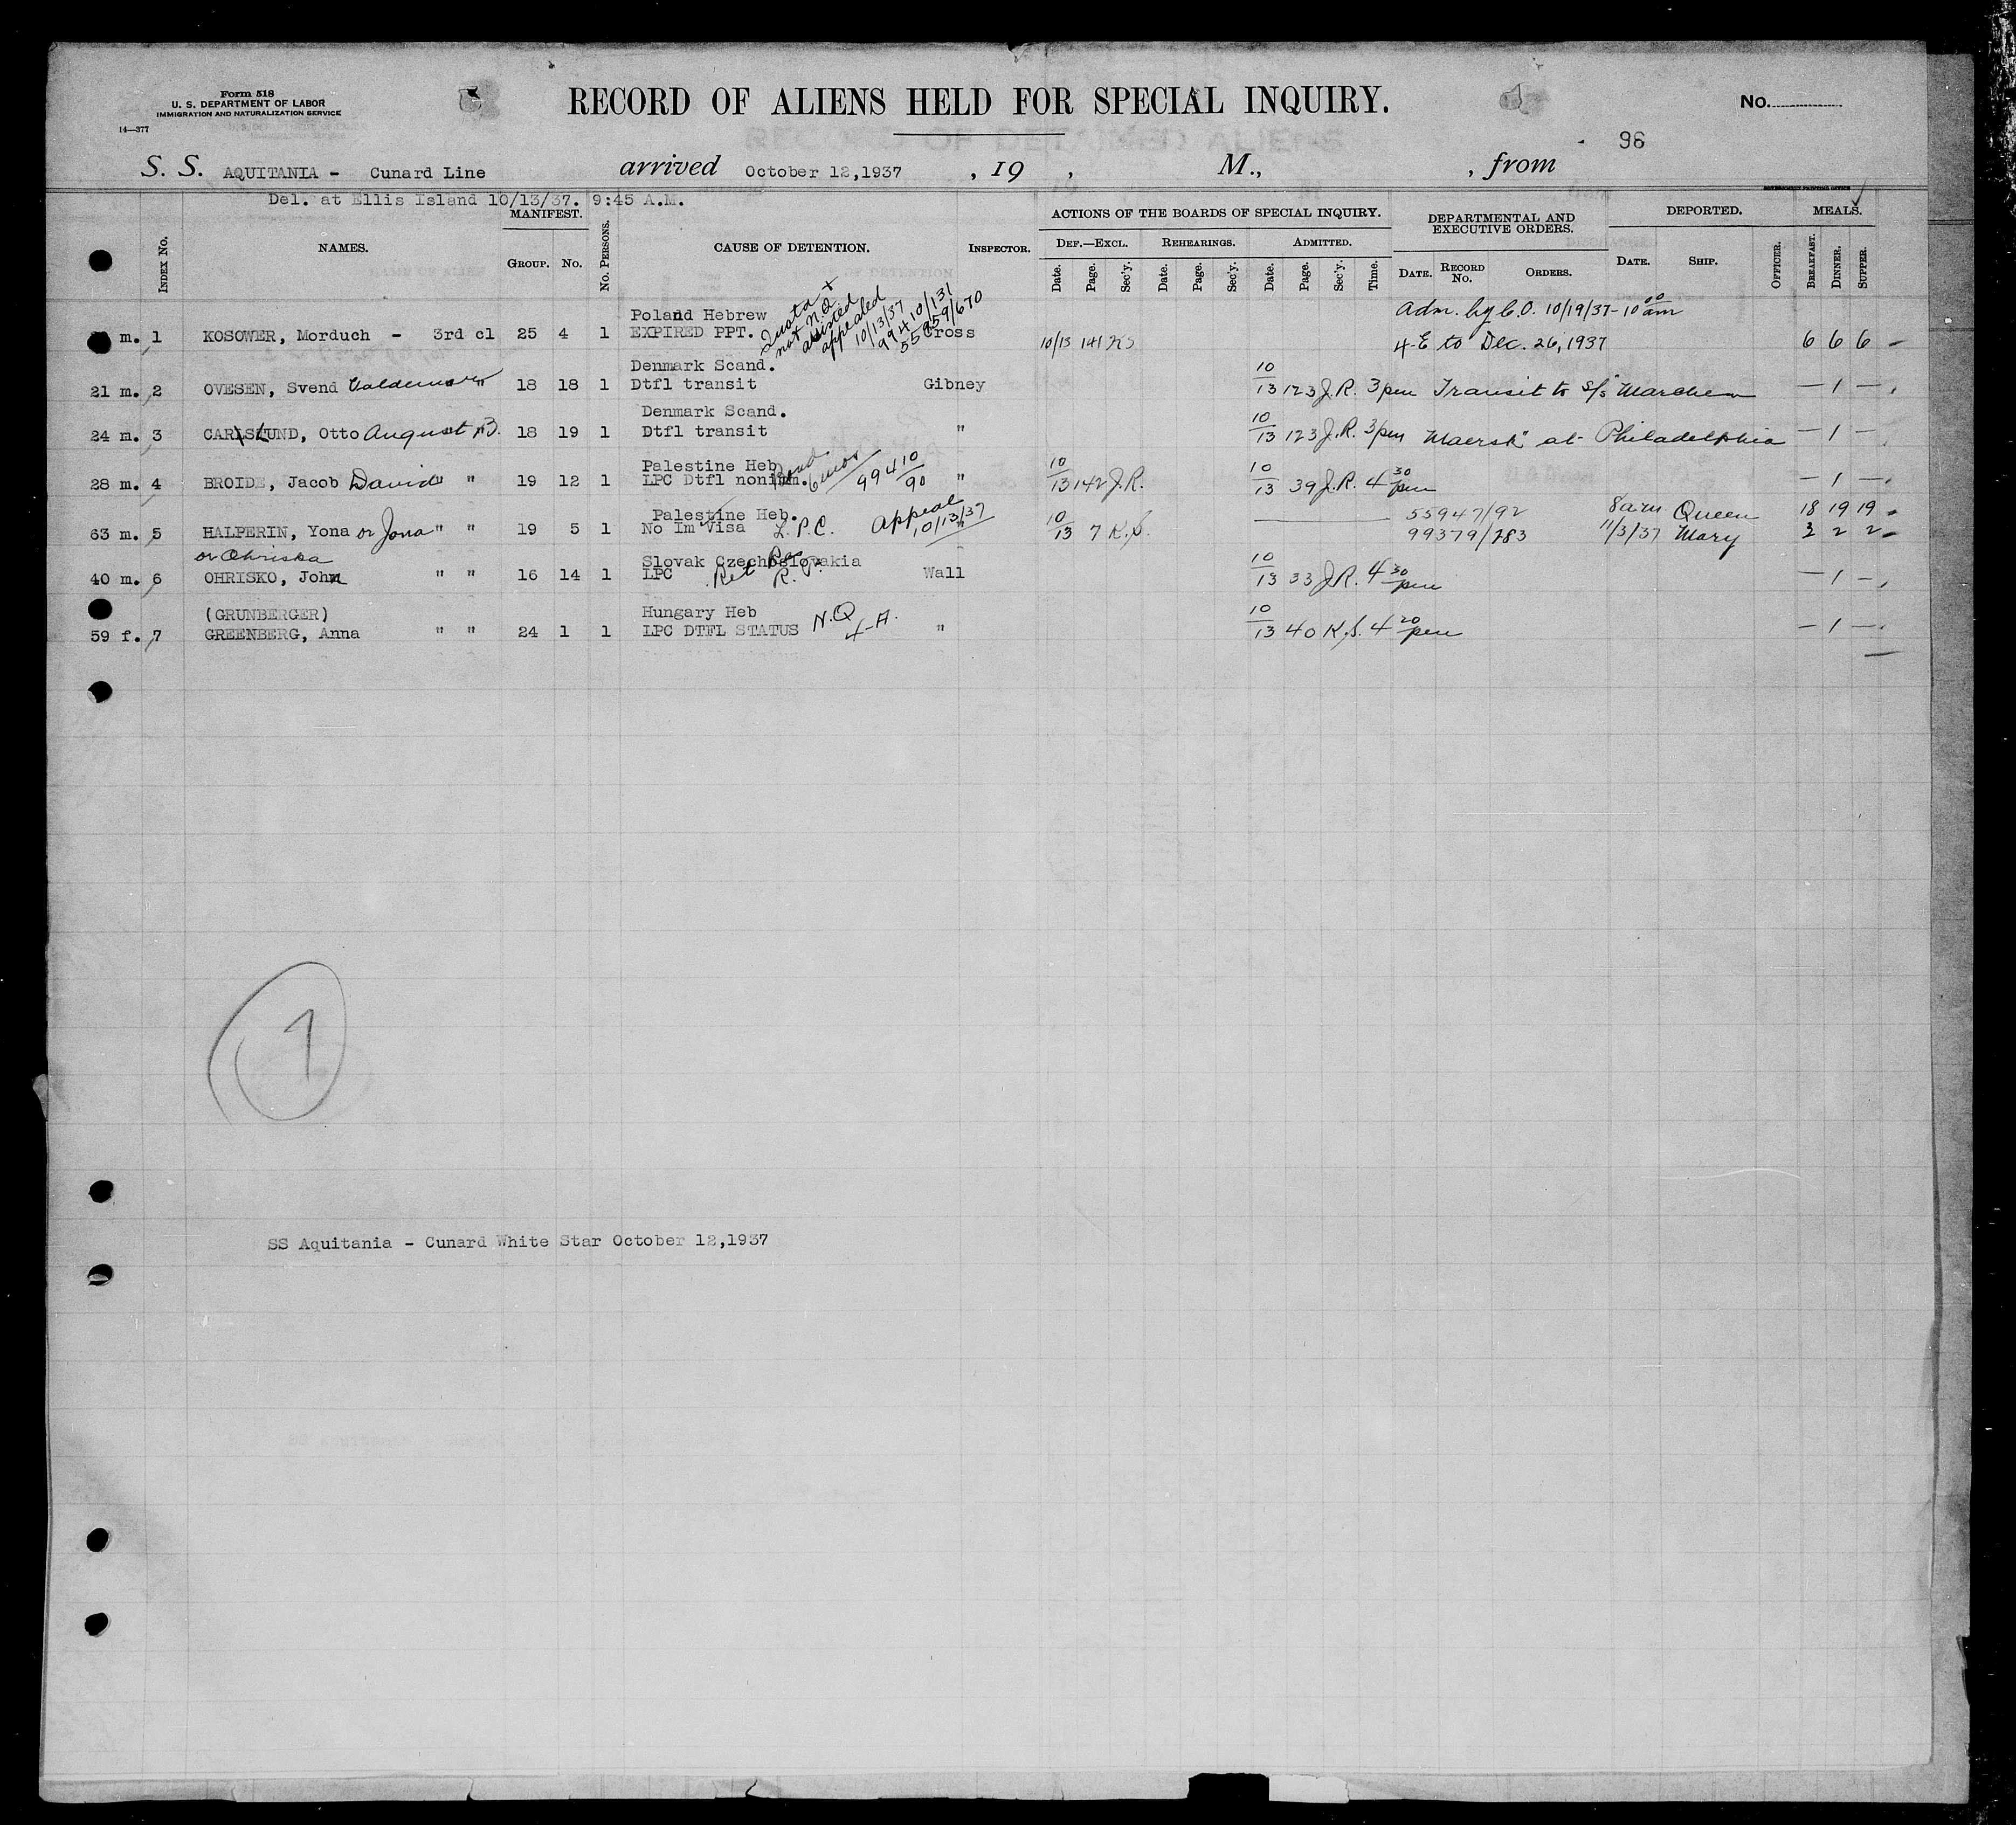 Form 518
U. S. DEPARTMENT OF LABOR
IMMIGRATION AND NATURALIZATION SERVICE
14—377
RECORD OF ALIENS HELD FOR SPECIAL INQUIRY.
No.
96
S. S. AQUITANIA - Cunard Line arrived October 12,1937 , 19 , M., , from
Del. at Ellis Island 10/13/37. 9:45 A.M.
INDEX No. NAMES. MANIFEST. GROUP. No. No. PERSONS. CAUSE OF DETENTION. INSPECTOR. ACTIONS OF THE BOARDS OF SPECIAL INQUIRY. DEPARTMENTAL AND EXECUTIVE ORDERS. DEPORTED. MEALS.
DEF.—EXCL. REHEARINGS. ADMITTED.
Date. Page. Sec'y. Date. Page. Sec'y. Date. Page. Sec'y. Time. DATE. RECORD No. ORDERS. DATE. SHIP. OFFICER. BREAKFAST. DINNER. SUPPER.
Poland Hebrew Quota + not N.Q. assisted appealed 10/13/37 99410/131 55959/670 Adm. by C.O. 10/19/37 - 10 00 am
m. 1 KOSOWER, Morduch - 3rd cl 25 4 1 EXPIRED PPT. Gross 10/13 141 KS 4-E to Dec. 26, 1937 6 6 6 -
Denmark Scand.
21 m. 2 OVESEN, Svend Valdemar " 18 18 1 Dtfl transit Gibney 10/13 123 J.R. 3pm Transit to S/S "Marchen — 1 —
Denmark Scand.
24 m. 3 CARLSLUND, Otto August B. 18 19 1 Dtfl transit " 10/13 123 J.R. 3pm Maersk" at Philadelphia — 1 —
Palestine Heb 99410/90
28 m. 4 BROIDE, Jacob David " " 19 12 1 LPC Dtfl nonimm. Bond 6 mos " 10/13 142 J.R. 10/13 39 J.R. 4 30 pm — 1 —
Palestine Heb. Appeal 10/13/37 55947/92 8am Queen 18 19 19
63 m. 5 HALPERIN, Yona or Jona " " 19 5 1 No Im Visa L.P.C. 10/13 7 K.S. 99379/283 11/3/37 Mary 3 2 2
or Ohriska Slovak Czechoslovakia
40 m. 6 OHRISKO, John " " 16 14 1 LPC Ret R.P. Wall 10/13 33 J.R. 4 30 pm — 1 —
(GRUNBERGER) Hungary Heb
59 f. 7 GREENBERG, Anna " " 24 1 1 LPC DTFL STATUS N.Q. 4-A. " 10/13 40 K.S. 4 20 pm — 1 —
7
SS Aquitania - Cunard White Star October 12,1937